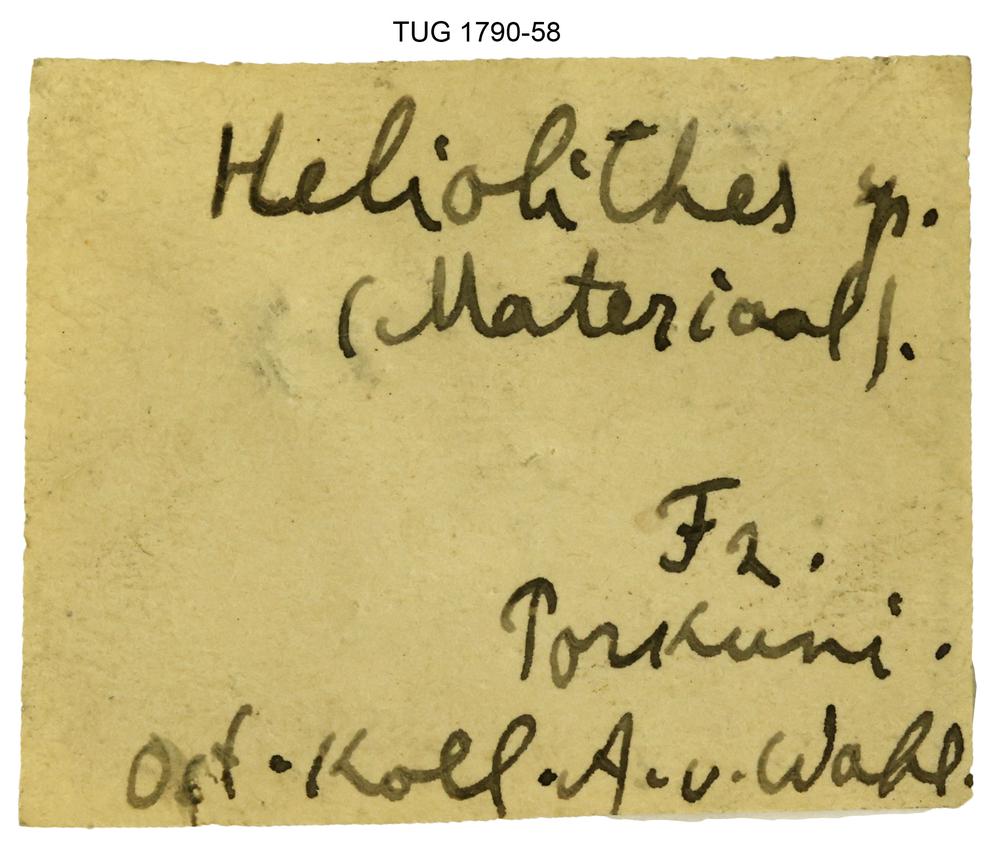 TUG 1790-58
Heliolithes p.
(Materiaal).
F2.
Porkuni.
Koll. A. v. Wahl.